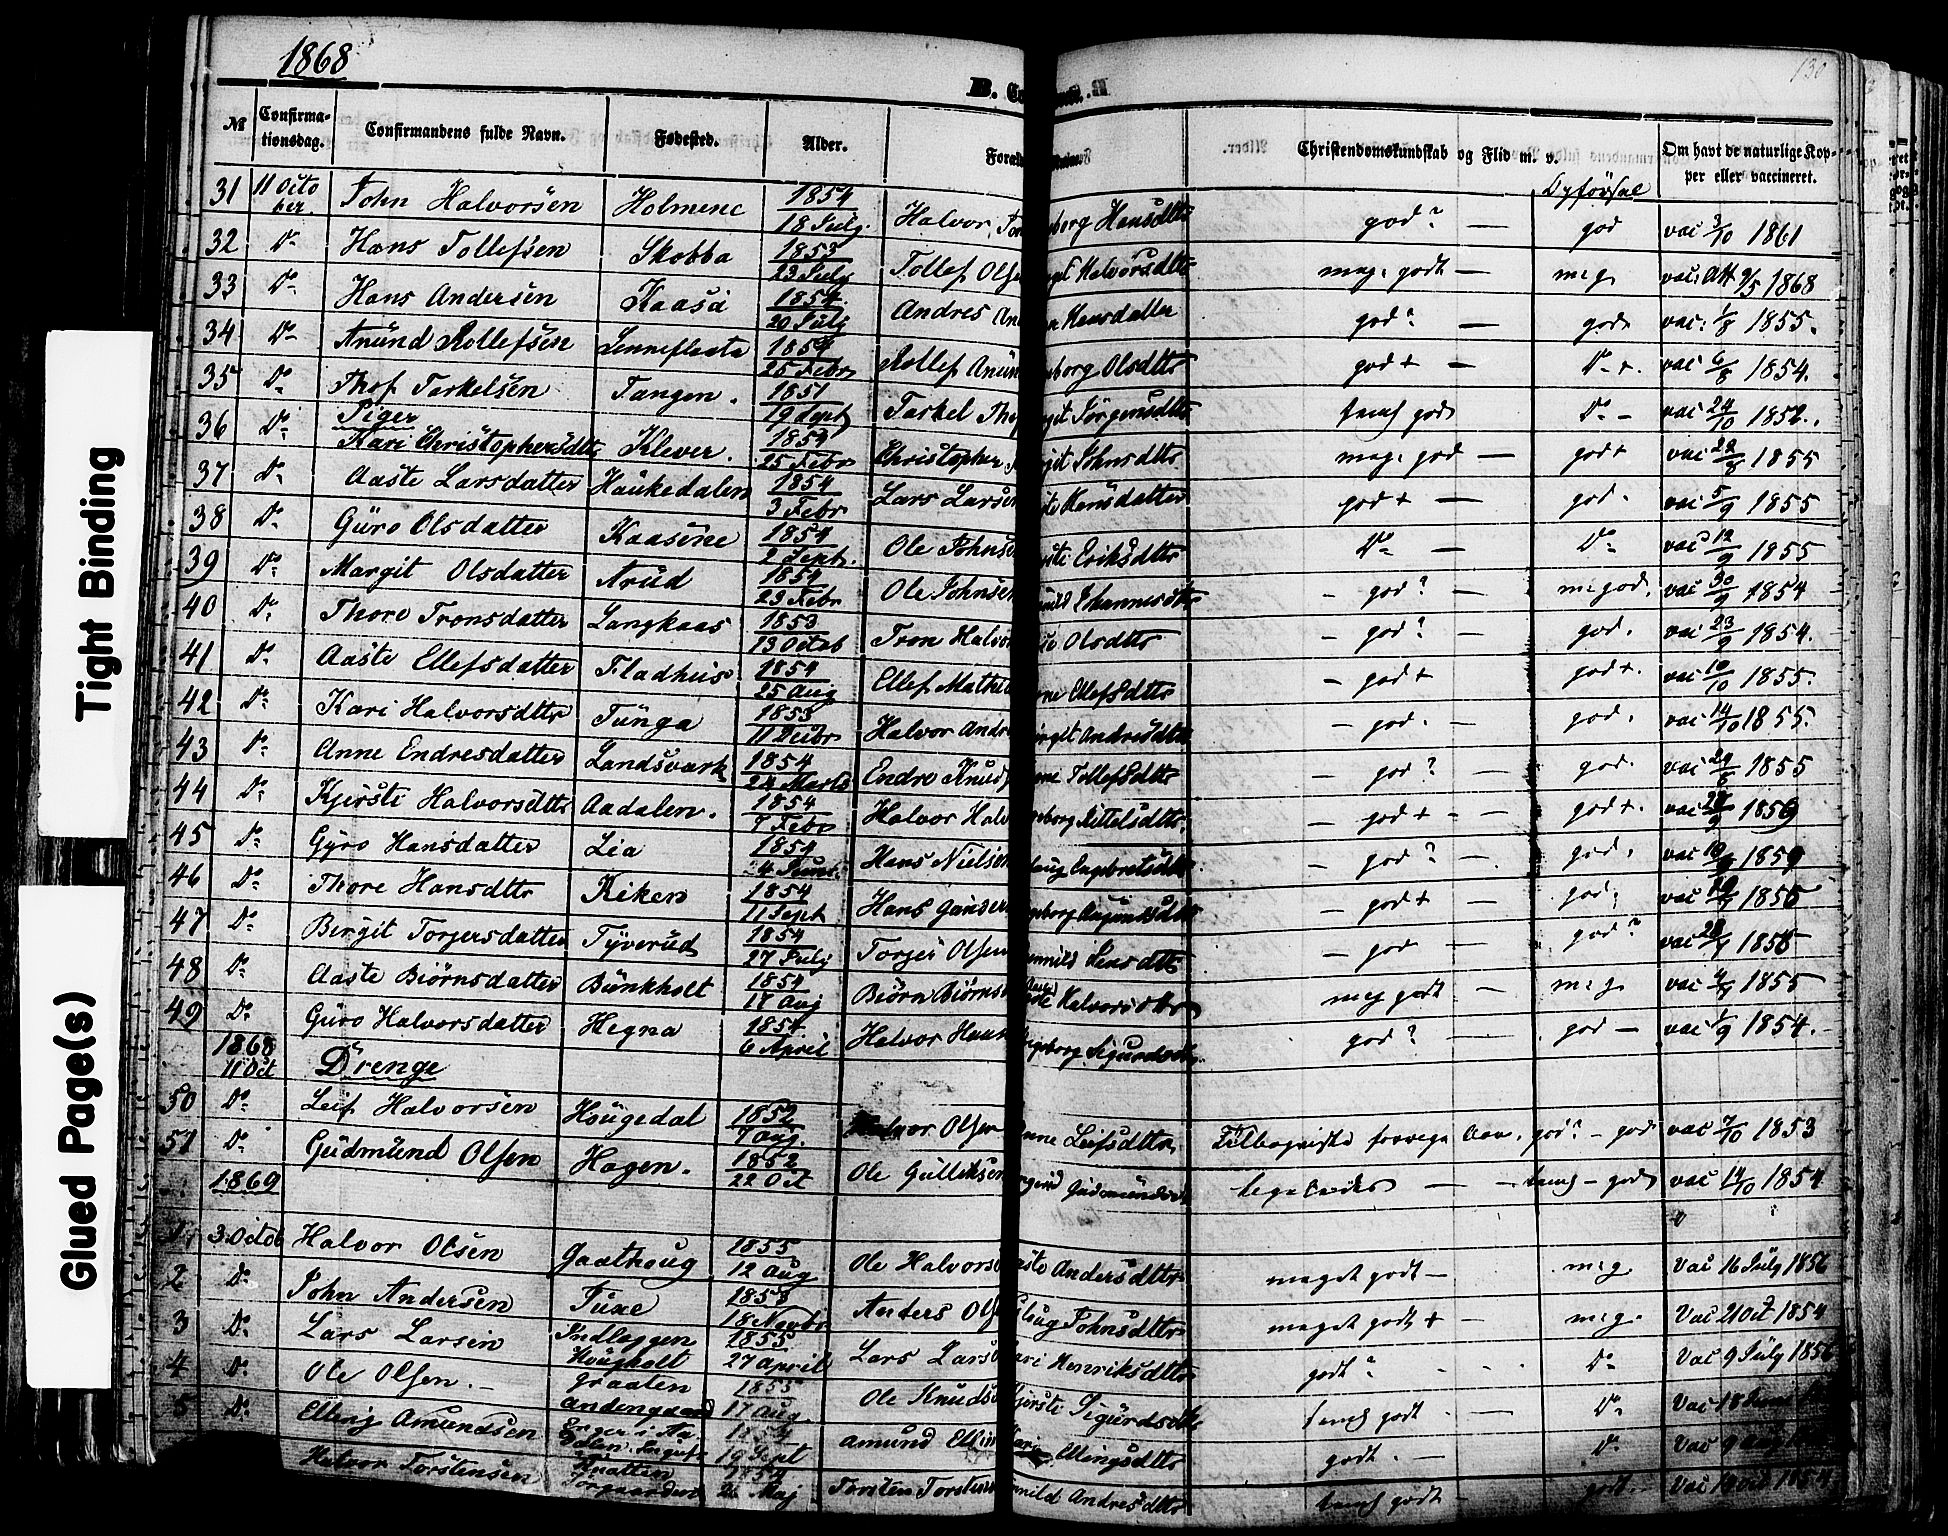 1868
130
B.
№ Confirma-tionsdag. Confirmandens fulde Navn. Fødested. Alder. Christendomskundskab og Flid m. v. Om havt de naturlige Kop-per eller vaccineret.
31 11 Octo ber. John Halvorsen Holmene 1854 18 July Halvor borg Hansdttr god? — god vac 3/10 1861
32 Do Hans Tollefsen Skobba 1853 23 July Tollef Olse Halvorsdttr meg. godt — meg vac. Att 9/5 1868
33 Do Hans Andersen Kaasa 1854 20 July Andres An Hansdatter god? — god vac. 1/8 1855.
34 Do Anund Rollefsen Lenneflaata 1854 25 Febr Rollef Anun borg Olsdttr god + Do +. vac 6/8 1854.
35 Do Thof Terkelsen Tangen. 1851 19 Sept Terkel Tho git Jørgensdttr temf god Do — vac 24/10 1852.
Piger
36 Do Kari Christophersdttr Klever. 1854 25 Febr Christopher git Johnsdttr meg. god — god + vac 22/8 1855
37 Do Aaste Larsdatter Haukedalen 1854 3 Febr Lars Larsen te Hansdatter god + — god. vac 5/9 1855
38 Do Guro Olsdatter Kaasene 1854 2 Sept. Ole Johnse ste Eriksdttr Do — Do vac 12/9 1855
39 Do Margit Olsdatter Arud 1854 23 Febr Ole Johnsen nild Johannesdttr — god? — me god. vac 30/9 1854
40 Do Thore Tronsdatter Langkaas 1853 13 Octob Tron Halvor te Olsdttr — god? — god. vac 23/9 1854.
41 Do Aaste Ellefsdatter Fladhus 1854 25 Aug Ellef Mathi ne Ellefsdttr — god + god +. vac 10/10 1855.
42 Do Kari Halvorsdttr Tunga 1853 11 Decbr Halvor Andr irgit Andresdttr — god. — god. vac 14/10 1855.
43 Do Anne Endresdatter Landsværk 1854 24 Marts Endre Knuds ne Tollefsdttr — god? — god. vac 1855
44 Do Kjersti Halvorsdttr Aadalen. 1854 7 Febr Halvor Halv geborg Kittelsdttr. — god + — god +. vac 1859
45 Do Gyro Hansdatter Lia 1854 4 Juni Hans Nielsen laug Engebretsdttr — god? — god. vac 1859
46 Do Thore Hansdttr Kiken 1854 11 Sept Hans Gunders geborg — god + — god. vac 1855
47 Do Bergit Torgersdatter Tyverud 1854 27 July Torger Olsen unnild Hansdttr — god — god? vac 1855
48 Do Aaste Biørnsdatter Bunkholt 1854 18 Aug Biørn Biørns Halvorsdttr meg godt — meg vac 1855
49 Do Guro Halvorsdatter Hegna 1854 6 April Halvor Hans ngeborg Sigurdsdttr. god? — god — vac 1/9 1854.
1868
11 Oct Drenge
50 Do Leif Halvorsen Hougedal 1852 7 Aug. Halvor Olsen nne Leifsdttr god? — god vac 7/10 1853
51 Do Gudmund Olsen Hagen. 1852 22 Oct Ole Gulliksen Gudmundsd ligeledes — temf — god vac 14/10 1854
1869
1 3 Octob Halvor Olsen Gaathoug 1855 12 Aug Ole Halvors aste Andersdttr meget godt — meg vac 16 July 1856
2 Do John Andersen Tuxe 1853 18 Novbr Anders Olse slaug Johnsdttr meget godt + — meg. Vac 21 Oct 1854
3 Do Lars Larsen Indlaggen Hougholt 1855 27 April Lars Lars ari Henriksdttr godt? Do Vac 9 July 1856
4 Do Ole Olsen. — Graaten andengaard 1855 17 Aug. Ole Knuds Kjerste Sigurdsdttr temf godt — Do Vac 18 Juni
5 Do Elling Amundsen 1854 19 Sept Amund Ellin Kari Ellingsdttr godt. — Do Vac 9 Aug
Halvor Torstensen 1854 2 Maj Torsten Torstens nild Andresdttr temf godt — godt. Vac 19 Oct 1854.
Tight Binding
Glued Page(s)